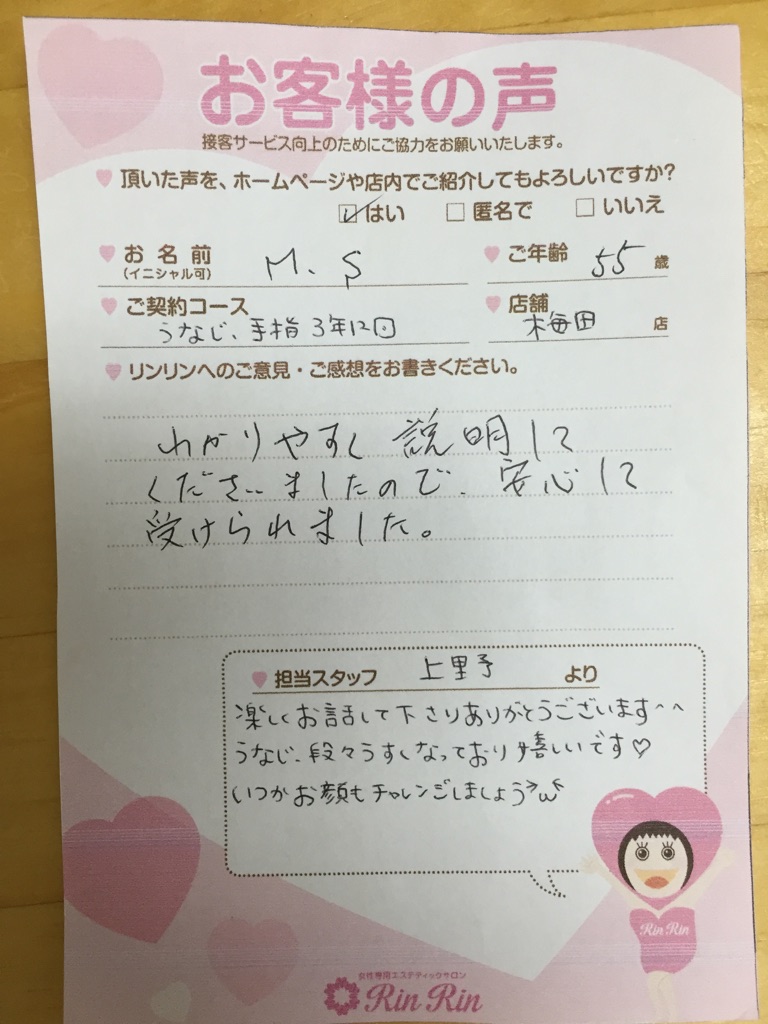 お客様の声
接客サービス向上のためにご協力をお願いいたします。
頂いた声を、ホームページや店内でご紹介してもよろしいですか?
はい 匿名で いいえ
お名前 M. S ご年齢 55 歳
(イニシャル可)
ご契約コース 店舗
うなじ、手指 3年12回 梅田 店
リンリンへのご意見・ご感想をお書きください。
わかりやすく 説明して
くださいましたので、安心して
受けられました。
担当スタッフ 上野 より
楽しくお話して下さりありがとうございます^^
うなじ、段々うすくなっており嬉しいです♡
いつかお顔もチャレンジしましょう>ω<
Rin Rin
女性専用エステティックサロン
Rin Rin